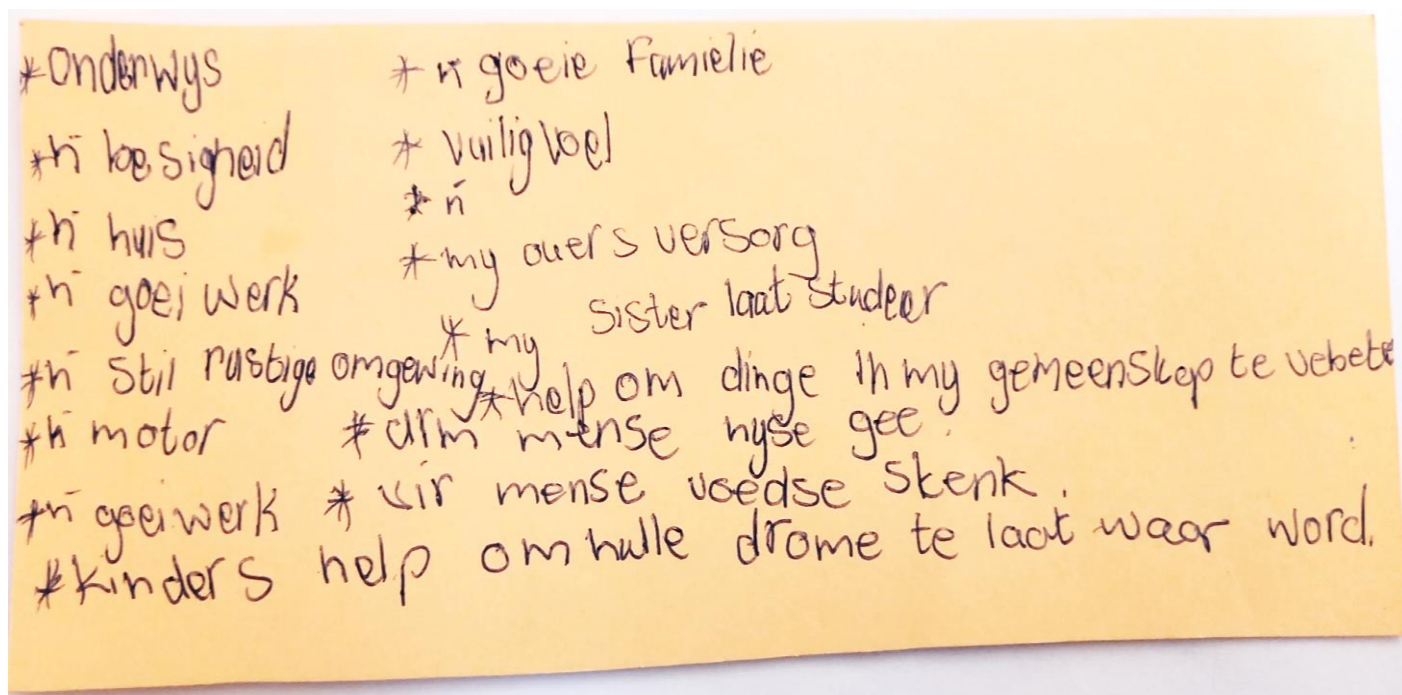 *Onderwys
*ń besigheid
*ń huis
*ń goei werk
*ń Stil rustige omgewing
*ń motor
*ń goei werk
* ń goeie Familie
* Vuilig Voel
* ń
*my ouers versorg
* my sister laat studeer
*help om dinge in my gemeenskap te vebete
*arm mense hyse gee.
* vir mense voedse skenk.
*kinders help om hulle drome te laat waar word.